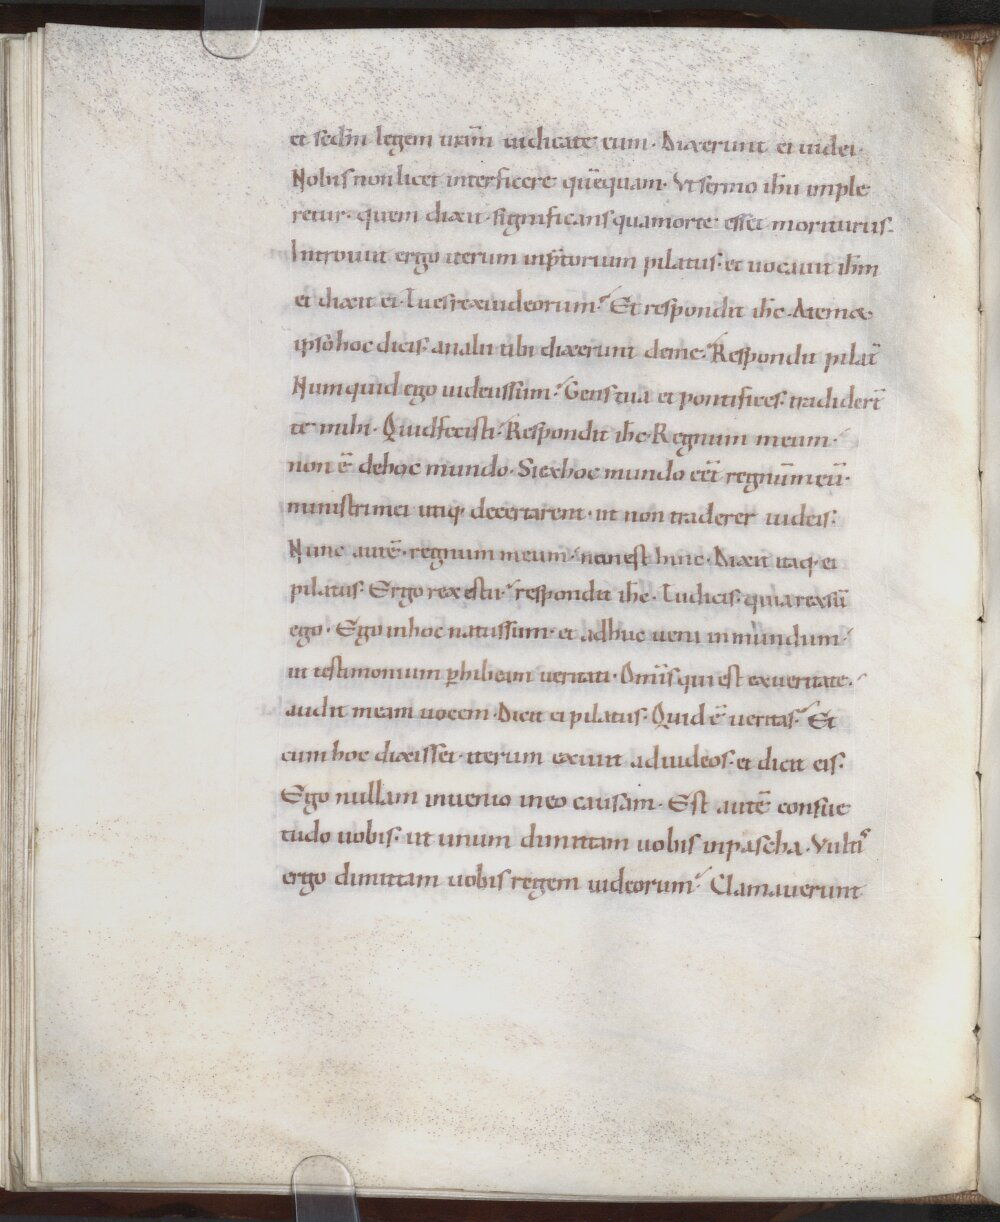 et secdm legem uram iudicate eum · Dixerunt ei iudei ·
Nobis non licet interficere quēquam · Vt sermo ihu imple
retur · quem dixit · significans qua morte esset moriturus ·
Introiuit ergo iterum in p̄torium pilatus · et uocauit ihm
et dixit ei · Tu es rex iudeorum? Et respondit ihc · A temet
ipso hoc dicis · an alii tibi dixerunt de me? Respondit pilat᷒
Numquid ego iudeus sum? Gens tua et pontifices · tradider̄t
te mihi · Quid fecisti? Respondit ihc · Regnum meum
non ē de hoc mundo · Si ex hoc mundo eēt regnum meū ·
ministri mei utiq; decertarent · ut non traderer iudeis ·
Nunc autē · regnum meum · non est hinc · Dixit itaq; ei
pilatus · Ergo rex es tu? respondit ihc · Tu dicis · quia rex sū
ego · Ego in hoc natus sum · et ad huc ueni in mundum
ut testimonium ꝑhibeam ueritati · Omīs qui est ex ueritate ·
audit meam uocem · Dicit ei pilatus · Quid ē ueritas? Et
cum hoc dixisset · iterum exiuit ad iudeos · et dicit eis ·
Ego nullam inuenio in eo causam · Est autē consue
tudo uobis · ut unum dimittam uobis in pascha · Vultis
ergo dimittam uobis regem iudeorum? Clamauerunt